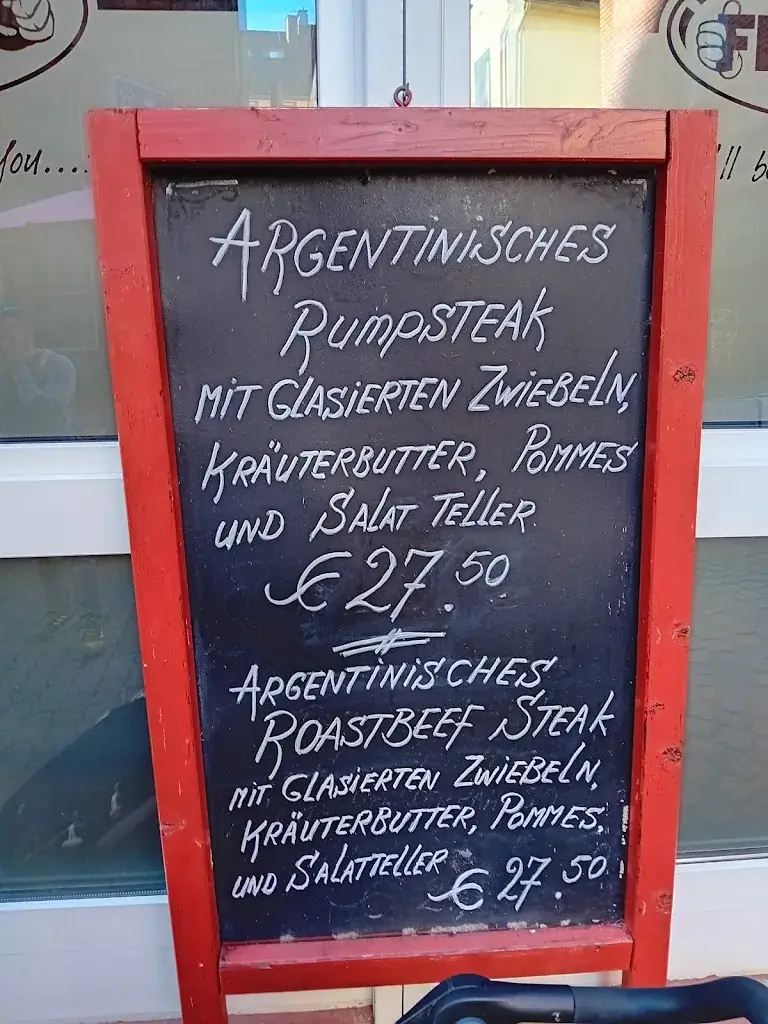 You....
'll b
FE
ARGENTINISCHES
RUMPSTEAK
MIT GLASIERTEN ZWIEBELN,
KRÄUTERBUTTER, POMMES
UND SALAT TELLER
€ 27.50
ARGENTINISCHES
ROASTBEEF STEAK
MIT GLASIERTEN ZWIEBELN,
KRÄUTERBUTTER, POMMES,
UND SALATTELLER
€ 27.50